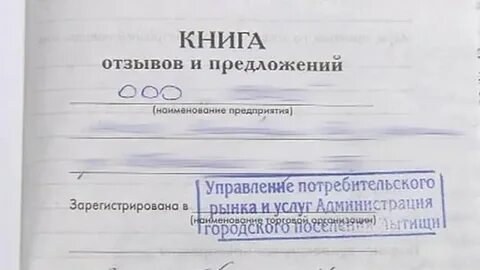 КНИГА
отзывов и предложений
ООО
(наименование предприятия)
Управление потребительского
Зарегистрирована в рынка и услуг Администрация
(наименование торговой организации)
городского поселения Мытищи